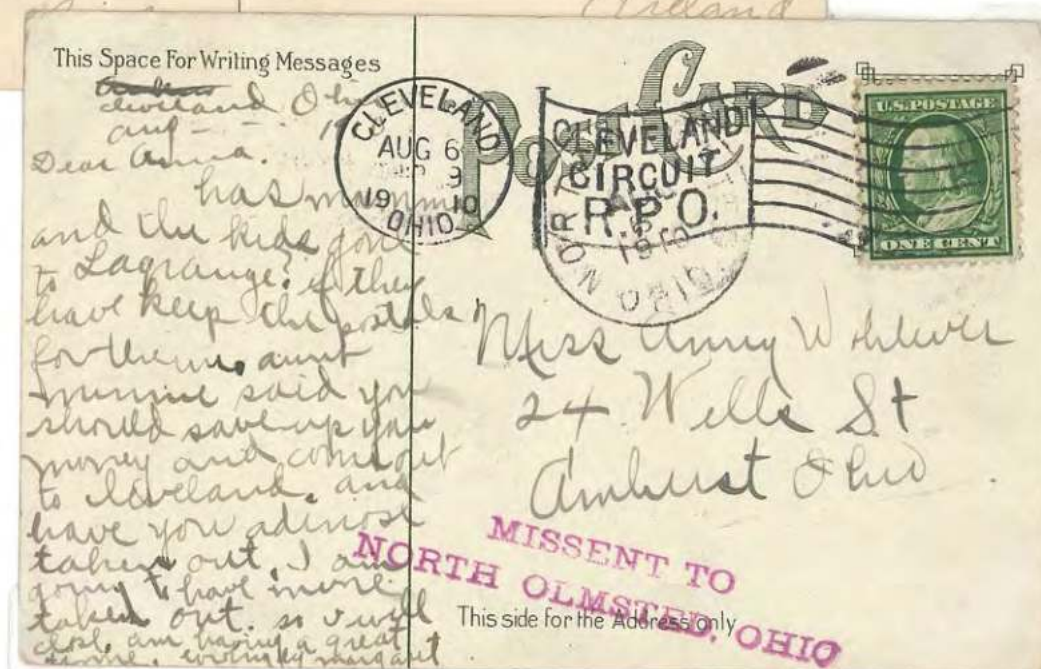 Ireland
This Space For Writing Messages
Cleveland, Ohio
Aug
Dear Anna.
has mumme
and the kids gone
to Lagrange? if they
have keep the postals
for them, aunt
minnie said you
should save up your
money and come out
to Cleveland. and
have you adinose
taken out. I am
going to have mine
taken out. so I will
close. am having a great
time. margaret
POST CARD
CLEVELAND
AUG 6
9
1910
OHIO
CLEVELAND
CIRCUIT
R.P.O.
1910
OHIO
U.S. POSTAGE
ONE CENT
Miss Anny Wohlever
24 Wells St
Amhurst Ohio.
MISSENT TO
NORTH OLMSTED, OHIO
This side for the Address only